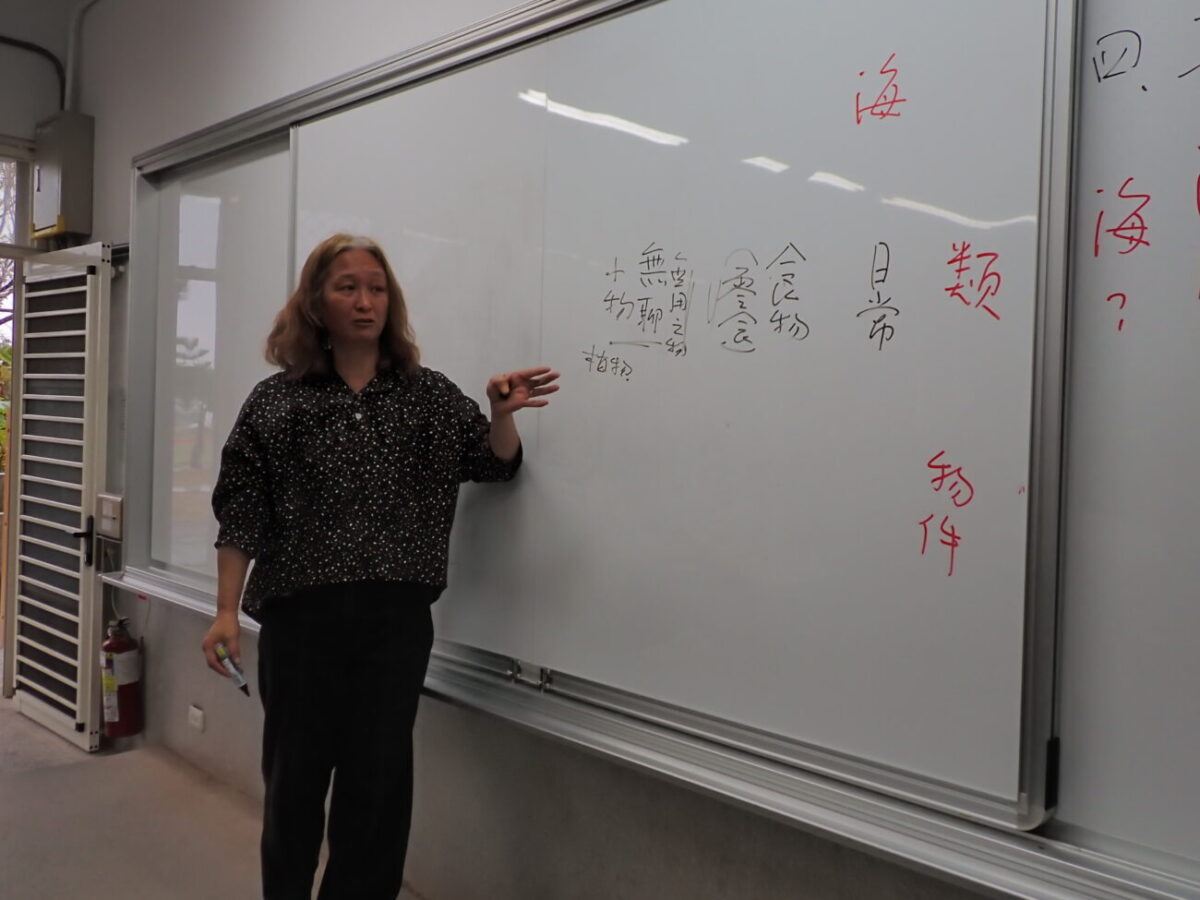 四、
海？
海
類
物件
日常
食物
(零食)
無用之物
無聊
植物